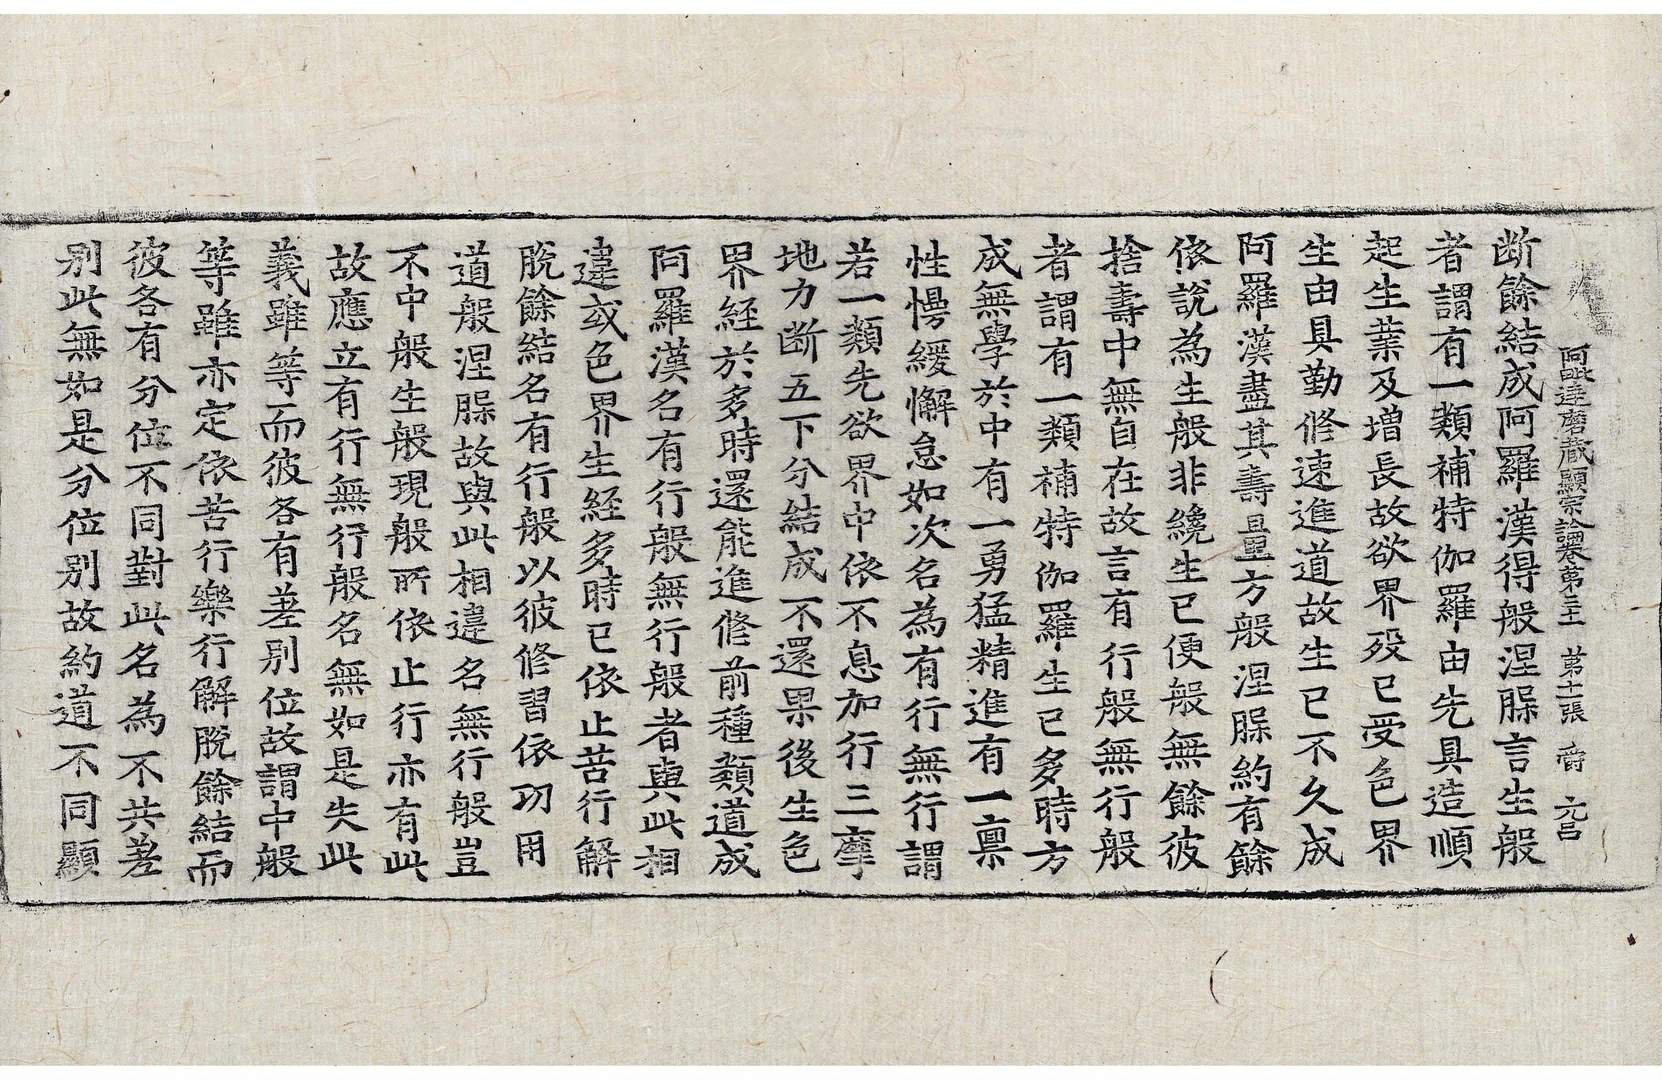 阿毗達磨藏顯宗論卷第三十一 第十張 爵 元呂
断餘結成阿羅漢得般涅腂言生般
者謂有一類補特伽羅由先具造順
起生業及增長故欲界殁已受色界
生由具勤修速進道故生已不久成
阿羅漢盡其壽量方般涅腂約有餘
依說為生般非纔生已便般無餘彼
捨壽中無自在故言有行般無行般
者謂有一類補特伽羅生已多時方
成無學於中有一勇猛精進有一稟
性慢緩懈怠如次名為有行無行謂
若一類先欲界中依不息加行三摩
地力断五下分結成不還果後生色
界經於多時還能進修前種類道成
阿羅漢名有行般無行般者與此相
違或色界生經多時已依止苦行解
脫餘結名有行般以彼修習依功用
道般涅腂故與此相違名無行般豈
不中般生般現般所依止行亦有此
故應立有行無行般名無如是失此
義雖等而彼各有差別位故謂中般
等雖亦定依苦行樂行解脫餘結而
彼各有分位不同對此名為不共差
別此無如是分位別故約道不同顯